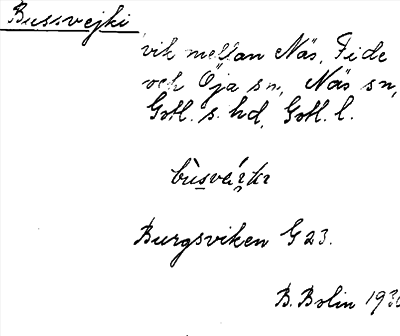 Bussvejki
vik mellan Näs, Fide
och Öja sn, Näs sn,
Gotl. s. hd, Gotl. l.
Burgsviken G 23.
B. Bolin